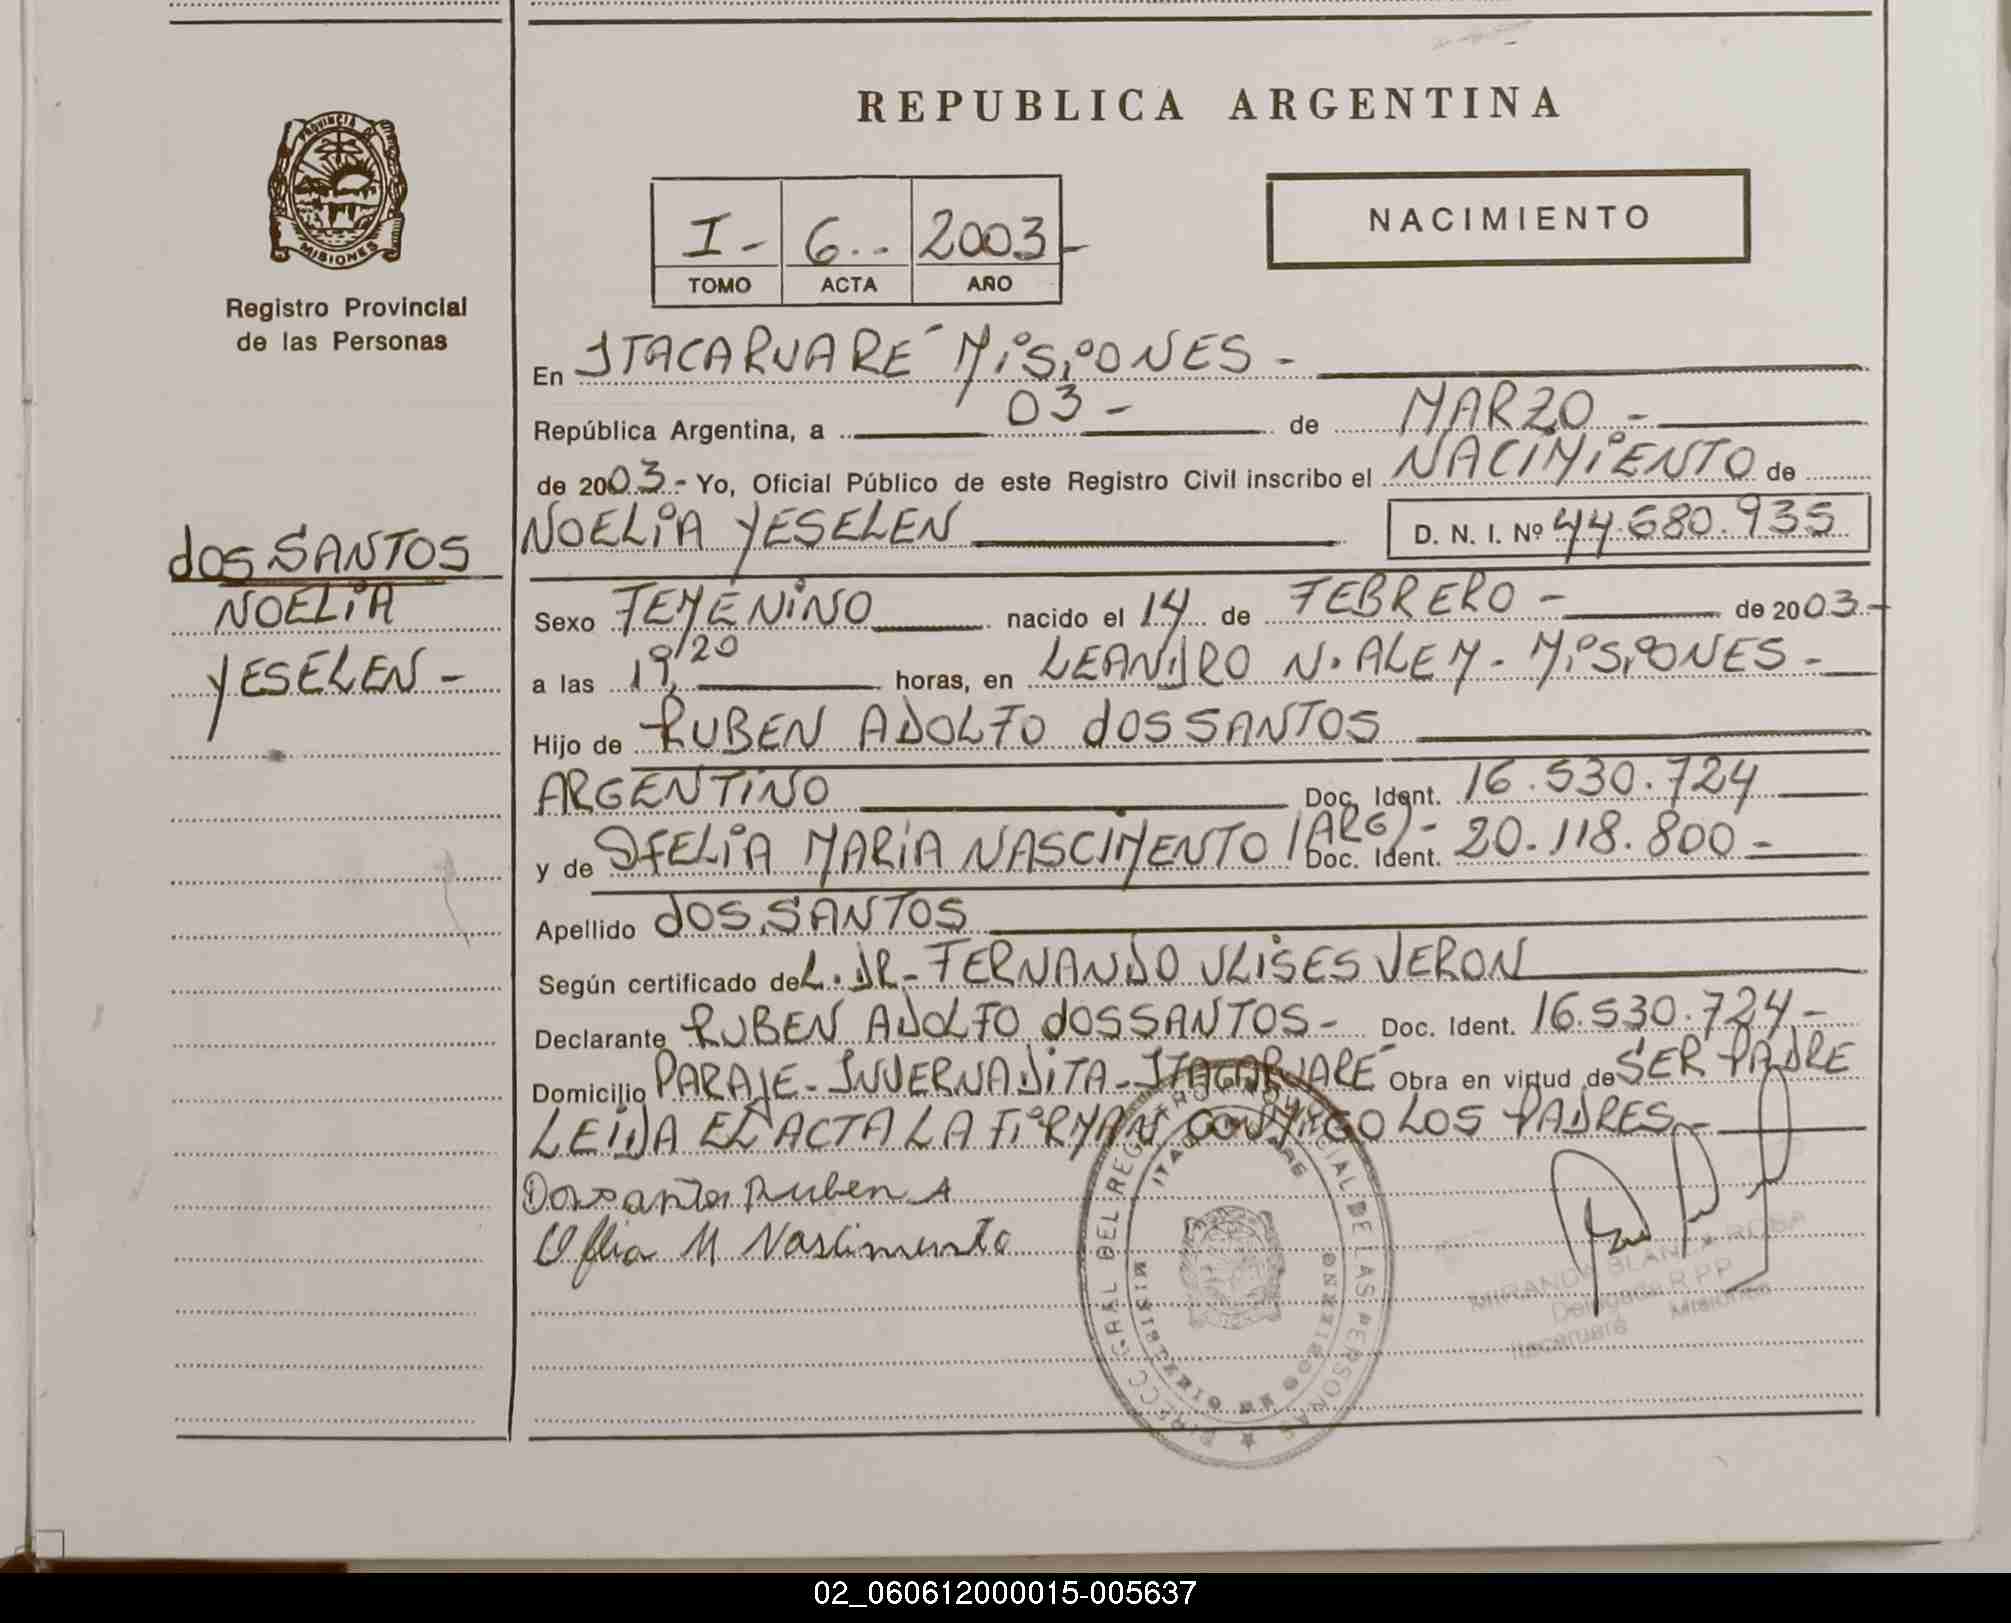 REPUBLICA ARGENTINA
PROVINCIA DE
MISIONES
Registro Provincial
de las Personas
I - 6 -- 2003 -
TOMO ACTA AÑO
NACIMIENTO
En ITACARUARÉ MISIONES -
República Argentina, a 03 - de MARZO -
de 2003.- Yo, Oficial Público de este Registro Civil inscribo el NACIMIENTO de
NOELIA YESELEN D. N. I. Nº 44.680.935
dos SANTOS
NOELIA
YESELEN -
Sexo FEMENINO nacido el 14 de FEBRERO - de 2003 -
a las 19,20 horas, en LEANDRO N. ALEM - MISIONES -
Hijo de RUBEN ADOLFO dos SANTOS
ARGENTINO Doc. Ident. 16.530.724
y de OFELIA MARÍA NASCIMENTO (ARG) - Doc. Ident. 20.118.800 -
Apellido dos SANTOS
Según certificado del. DR - FERNANDO ULISES VERON
Declarante RUBEN ADOLFO dos SANTOS - Doc. Ident. 16.530.724 -
Domicilio PARAJE - INVERNADITA - ITACARUARÉ Obra en virtud de SER PADRE
LEIDA EL ACTA LA FIRMAN CONMIGO LOS PADRES -
Dossantos Ruben A
Ofelia M Nascimento
MIRANDA BLANCA ROSA
Delegada R.P.P
Itacaruaré Misiones
02_060612000015-005637